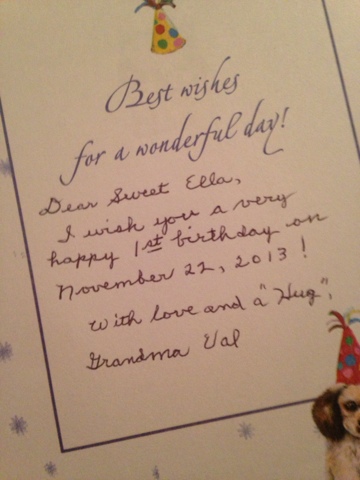 Best wishes
for a wonderful day!
Dear Sweet Ella,
I wish you a very
happy 1st birthday on
November 22, 2013!
With love and a "Hug",
Grandma Val